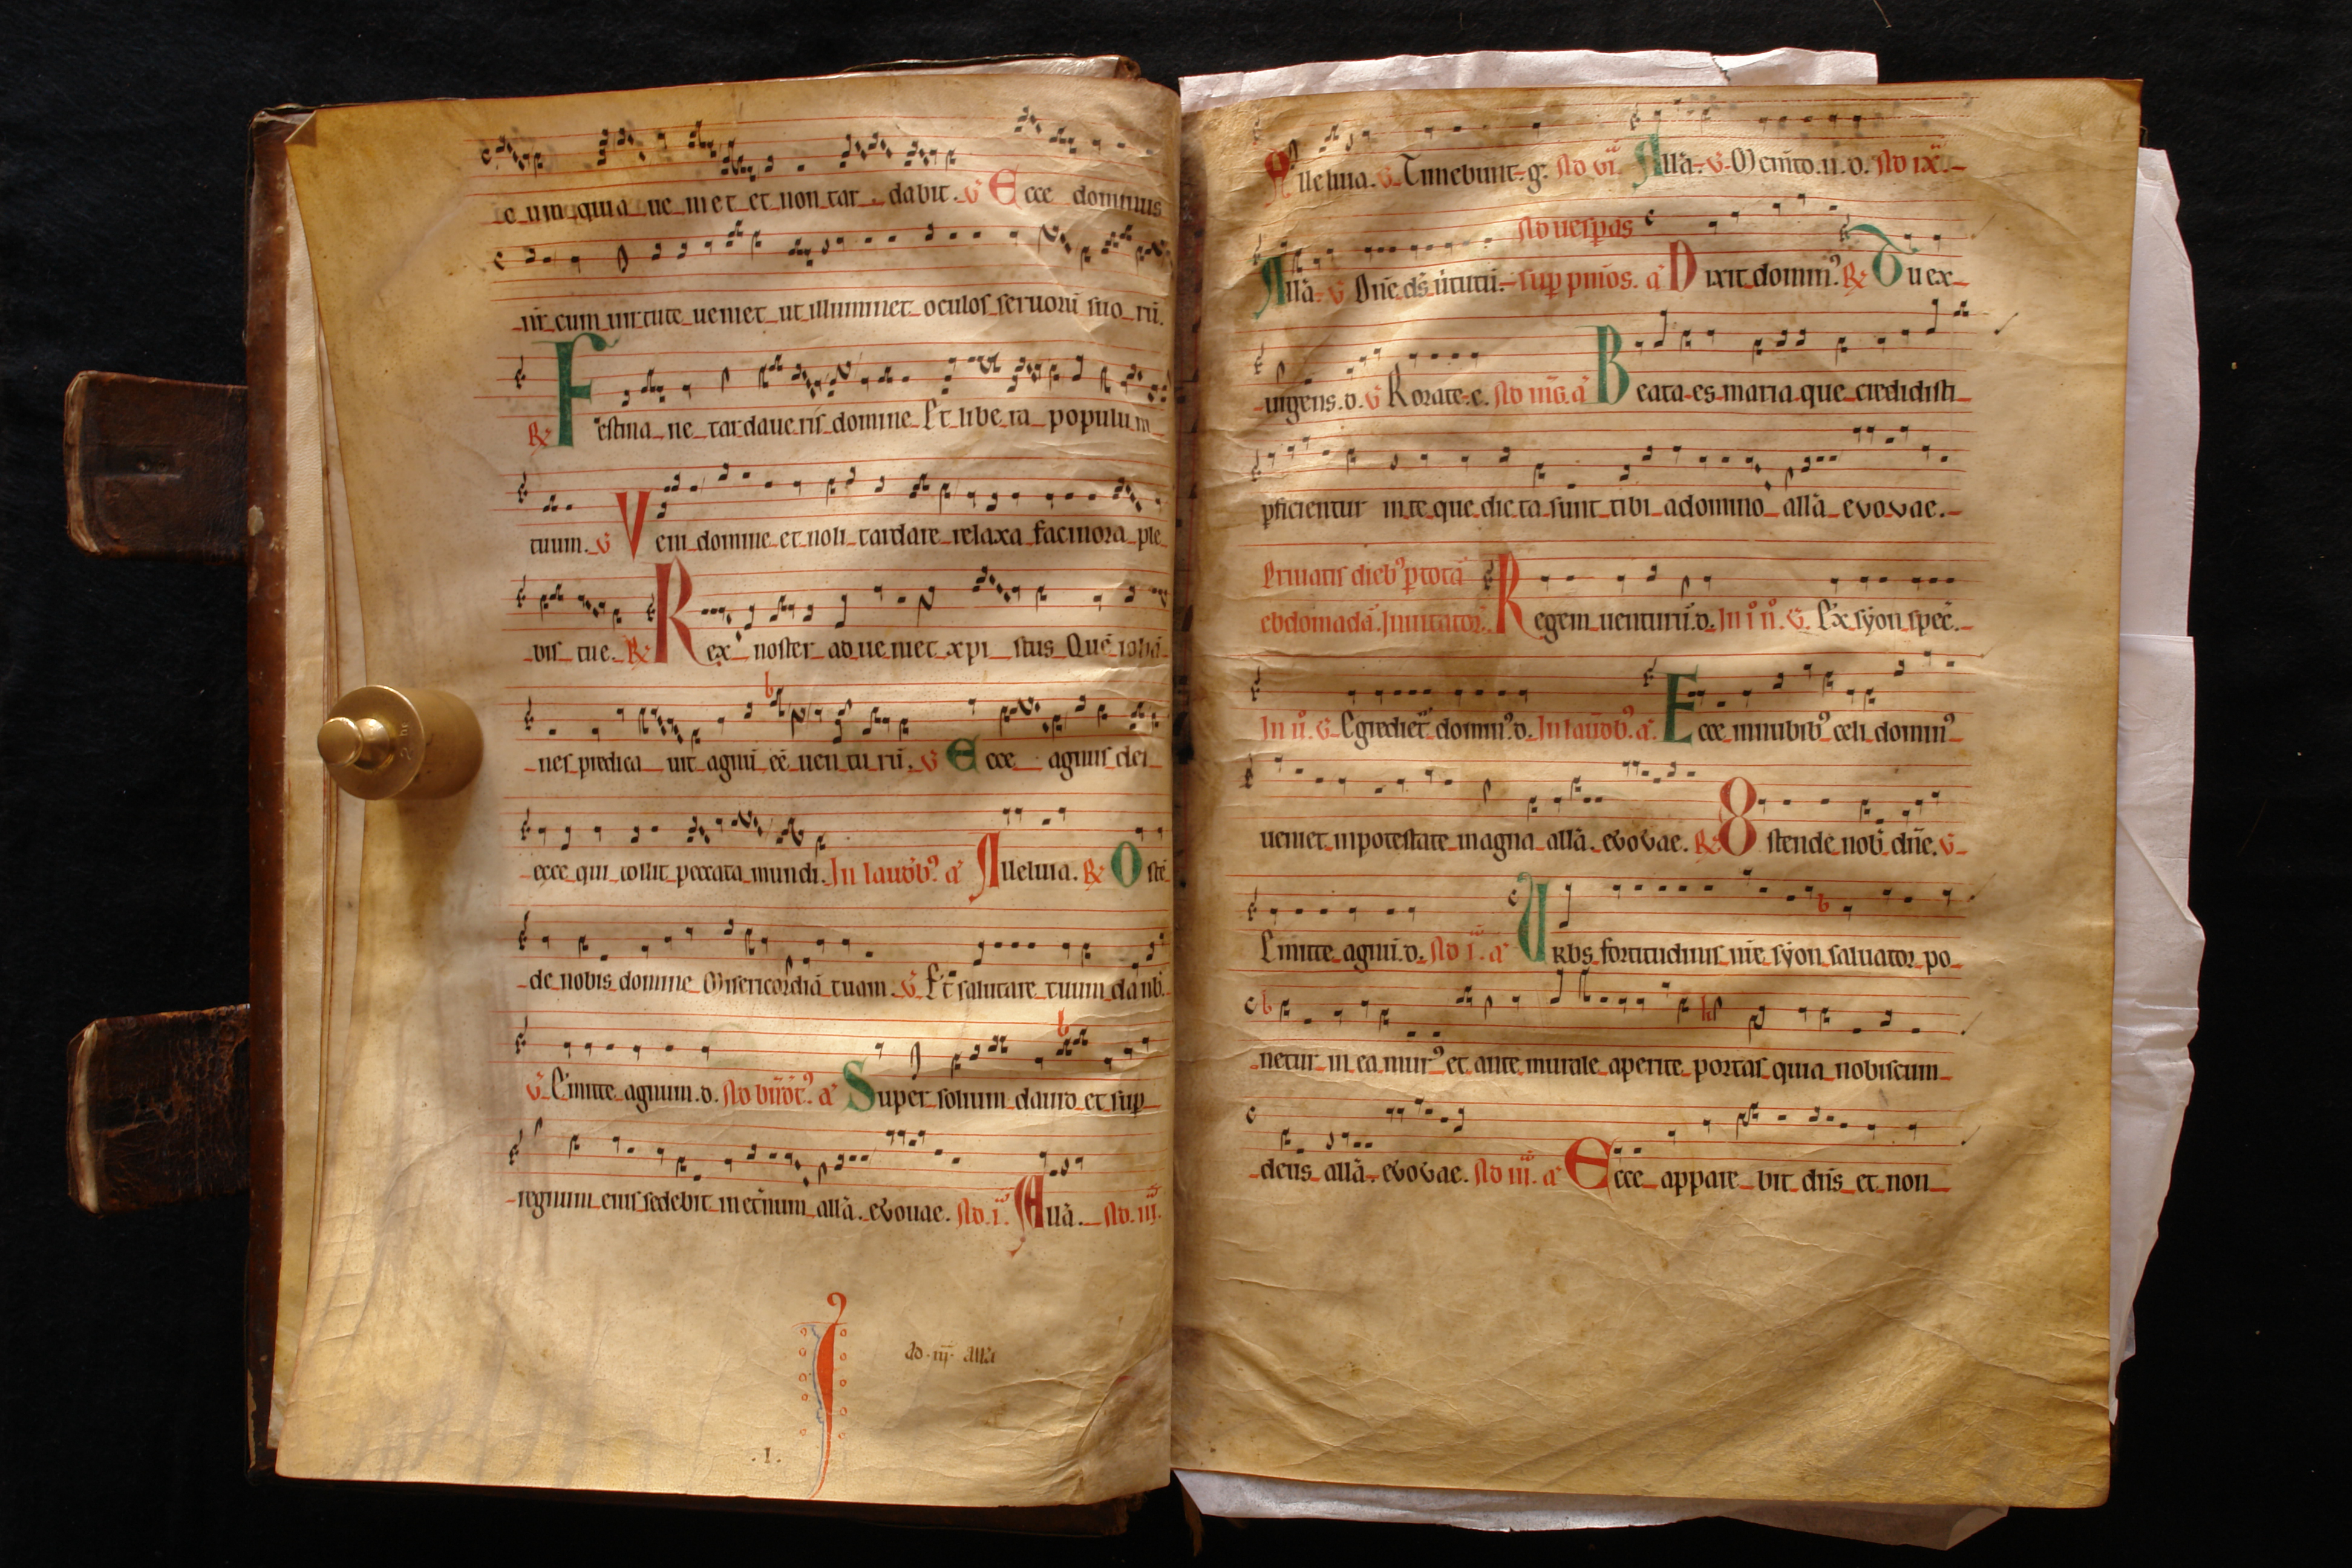 e um quia ue niet et non tar dabit. V Ecce dominus
nr̄ cum uirtute ueniet ut illuminet oculos seruorū suo rū.
R Festina ne tardaueris domine Et libera populum
tuum. V Veni domine et noli tardare relaxa facinora ple
bis tue. R Rex noster adueniet xpi stus Quē iohā
nes predica uit agnū eē uenturū. V Ecce agnus dei
ecce qui tollit peccata mundi. In laudb' a' Alleluia. R Ostē
de nobis domine Misericordiā tuam. V Et salutare tuum da nb̄.
V Emitte agnum. d. Ad bn̄dc̄t' a' Super solium dauid et sup
regnum eius sedebit in et̄num allā. evouae. Ad. i. Allā. Ad. iii.
ad. iij. allā
.I.
Alleluia. V Timebunt. g. Ad vi. Allā. V Memto. n. d. Ad ix.
Ad uesp̄as
Allā. V Dn̄e ds̄ uirtutū. sup pm̄os. a' Dixit domin'. R Tu ex
uigens. d. V Rorate. c. Ad mḡ. a' Beata es maria que credidisti
pficientur in te que dicta sunt tibi a domino allā evovae.
Priuatis dieb' p totā
ebdomadā. Inuitator. Regem uenturū. d. In i n̊. V. Ex syon speč.
In ii. V Egrediet̄ domin'. d. In laudb'. a'. Ecce in nubib' celi domin'
ueniet in potestate magna allā. evovae. R Ostende nob̄ dn̄e. V
Emitte agnū. d. Ad i. a' Vrbs fortitudinis nr̄e syon saluator po
netur in ea mur' et ante murale aperite portas quia nobiscum
deus allā. evovae. Ad iii. a' Ecce appare bit dn̄s et non